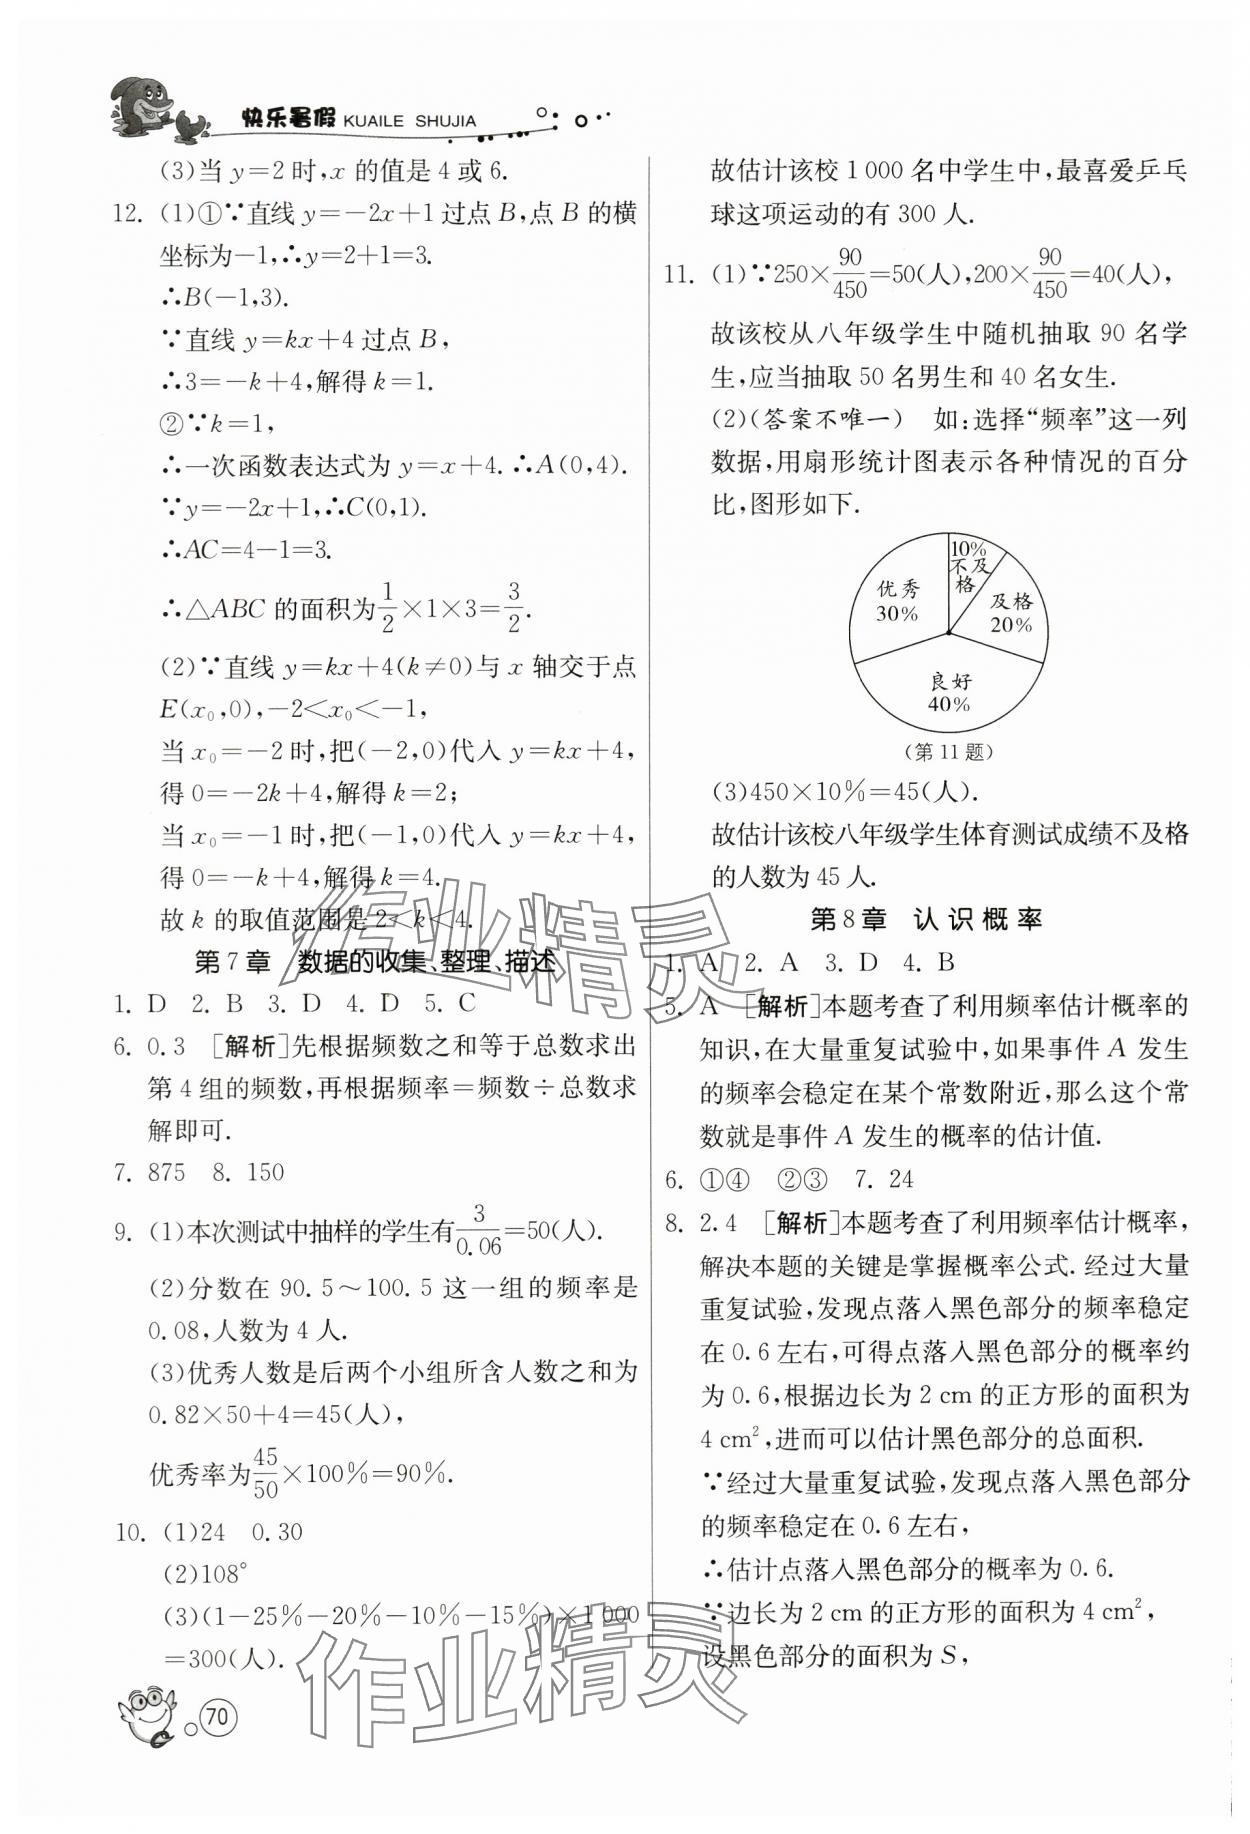 快乐暑假 KUAILE SHUJIA
(3)当 y=2 时,x 的值是 4 或 6.
12. (1)①∵直线 y=-2x+1 过点 B,点 B 的横
坐标为-1,∴y=2+1=3.
∴B(-1,3).
∵直线 y=kx+4 过点 B,
∴3=-k+4,解得 k=1.
②∵k=1,
∴一次函数表达式为 y=x+4. ∴A(0,4).
∵y=-2x+1,∴C(0,1).
∴AC=4-1=3.
∴△ABC 的面积为1/2×1×3=3/2.
(2)∵直线 y=kx+4(k≠0)与 x 轴交于点
E(x₀,0),-2<x₀<-1,
当 x₀=-2 时,把(-2,0)代入 y=kx+4,
得 0=-2k+4,解得 k=2;
当 x₀=-1 时,把(-1,0)代入 y=kx+4,
得 0=-k+4,解得 k=4.
故 k 的取值范围是 2<k<4.
第 7 章 数据的收集、整理、描述
1. D 2. B 3. D 4. D 5. C
6. 0.3 [解析]先根据频数之和等于总数求出
第 4 组的频数,再根据频率=频数÷总数求
解即可.
7. 875 8. 150
9. (1)本次测试中抽样的学生有3/0.06=50(人).
(2)分数在 90.5～100.5 这一组的频率是
0.08,人数为 4 人.
(3)优秀人数是后两个小组所含人数之和为
0.82×50+4=45(人),
优秀率为45/50×100%=90%.
10. (1)24 0.30
(2)108°
(3)(1-25%-20%-10%-15%)×1 000
=300(人).
70
故估计该校 1 000 名中学生中,最喜爱乒乓
球这项运动的有 300 人.
11. (1)∵250×90/450=50(人),200×90/450=40(人),
故该校从八年级学生中随机抽取 90 名学
生,应当抽取 50 名男生和 40 名女生.
(2)(答案不唯一) 如:选择“频率”这一列
数据,用扇形统计图表示各种情况的百分
比,图形如下.
10%
不及
格
优秀
30%
及格
20%
良好
40%
(第 11 题)
(3)450×10%=45(人).
故估计该校八年级学生体育测试成绩不及格
的人数为 45 人.
第 8 章 认识概率
1. A 2. A 3. D 4. B
5. A [解析]本题考查了利用频率估计概率的
知识,在大量重复试验中,如果事件 A 发生
的频率会稳定在某个常数附近,那么这个常
数就是事件 A 发生的概率的估计值.
6. ①④ ②③ 7. 24
8. 2.4 [解析]本题考查了利用频率估计概率,
解决本题的关键是掌握概率公式. 经过大量
重复试验,发现点落入黑色部分的频率稳定
在 0.6 左右,可得点落入黑色部分的概率约
为 0.6,根据边长为 2 cm 的正方形的面积为
4 cm²,进而可以估计黑色部分的总面积.
∵经过大量重复试验,发现点落入黑色部分
的频率稳定在 0.6 左右,
∴估计点落入黑色部分的概率为 0.6.
∵边长为 2 cm 的正方形的面积为 4 cm²,
设黑色部分的面积为 S,
作业精灵
作业精灵